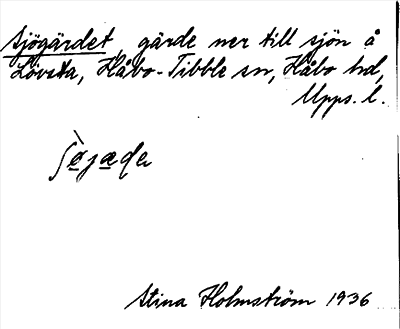 Sjögärdet, gärde ner till sjön å
Lövsta, Håbo-Tibble sn, Håbo hd,
Upps. l.
Stina Holmström 1936